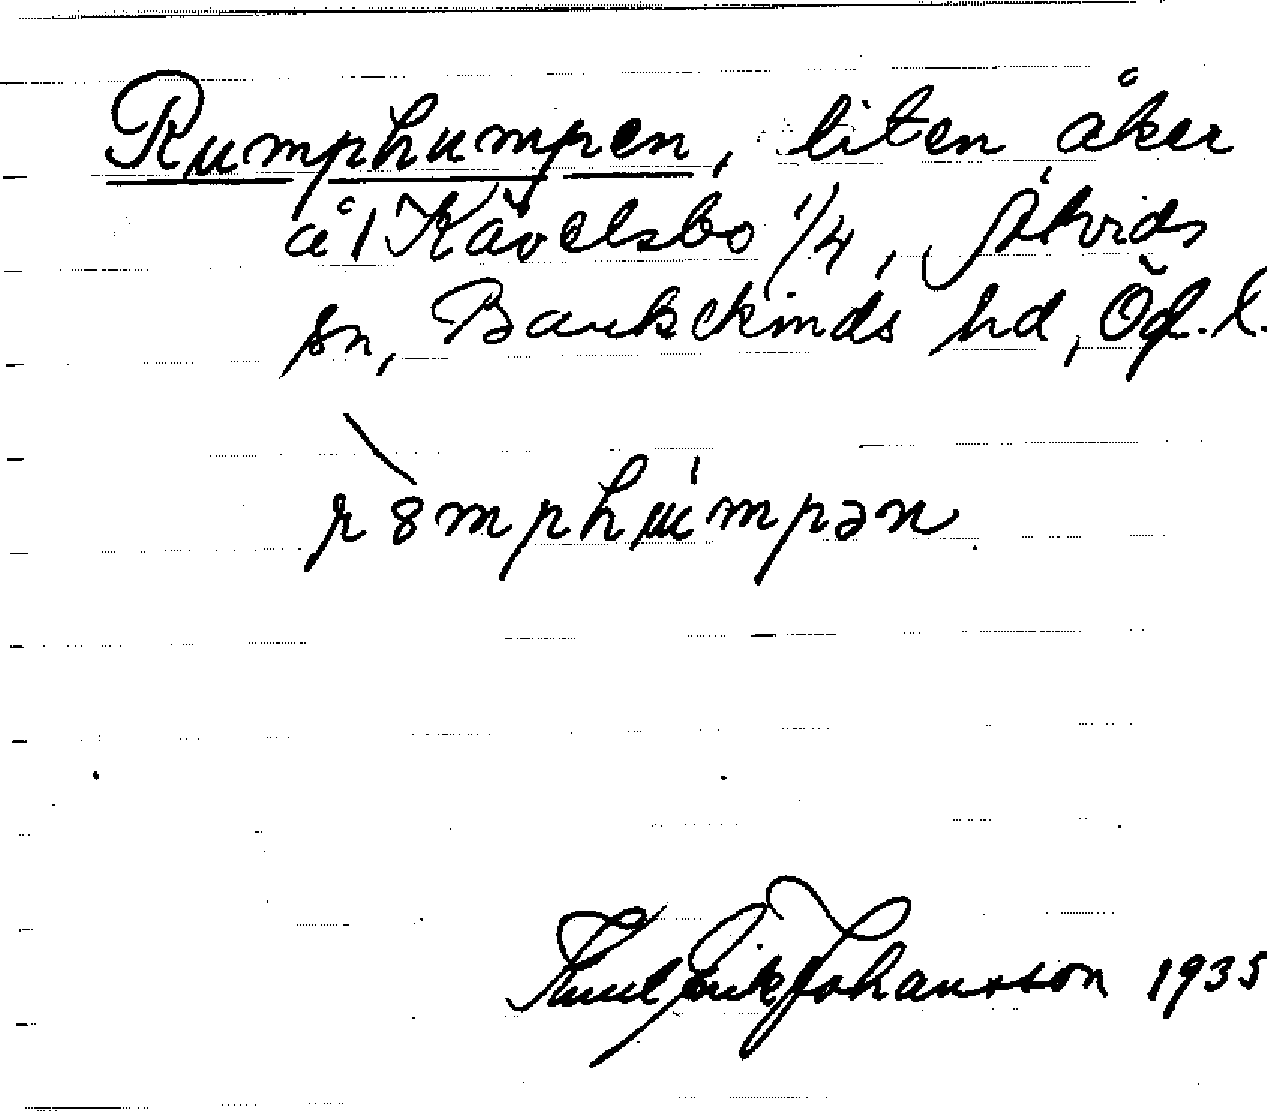 Rumphumpen, liten åker
å Kävelsbo 1/4, Åtvids
sn, Bankekinds hd, Ög. l.
r8mphumpən
Erik Johansson 1935